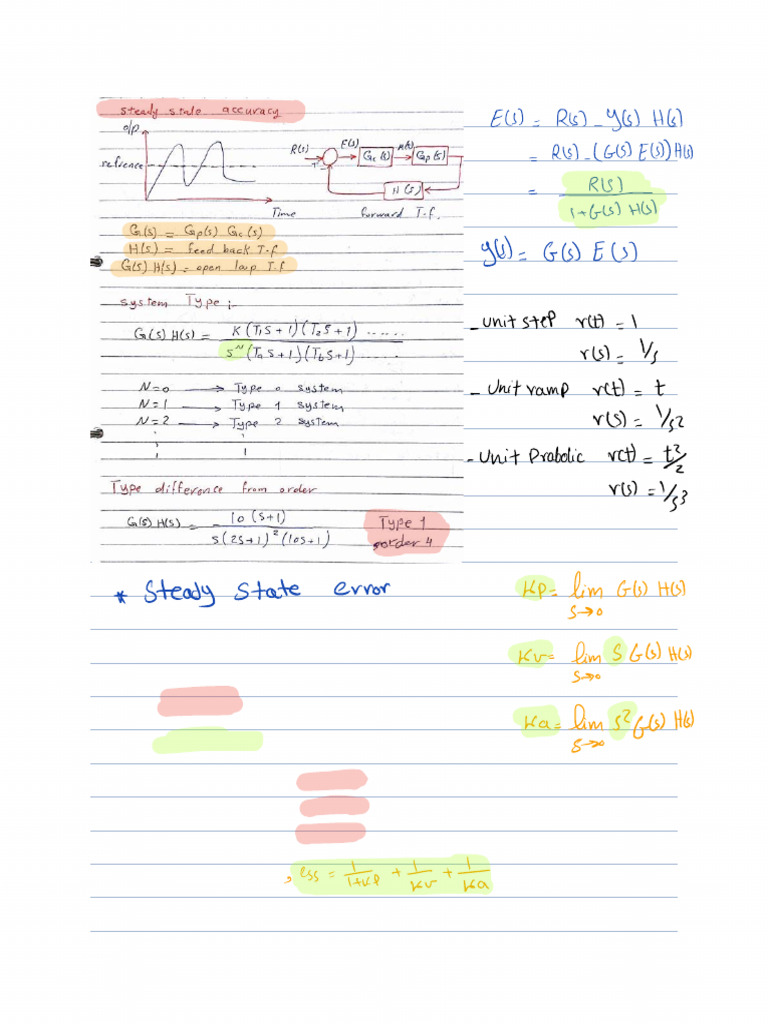 steady state accuracy
o/p
refrence
Time
R(s)
E(s)
Gc(s)
Gp(s)
H(s)
forward T.f.
G(s) = Gp(s) Gc(s)
H(s) = feed back T.f
G(s) H(s) = open loop T.f
system Type :-
G(s) H(s) = K(T1s+1)(T2s+1) ...... / s^N (Tas+1)(Tbs+1) .....
N=0 → Type 0 system
N=1 → Type 1 system
N=2 → Type 2 system
Type difference from order
G(s) H(s) = 10(s+1) / s(2s+1)² (10s+1)
Type 1
order 4
E(s) = R(s) - y(s) H(s)
= R(s) - (G(s) E(s)) H(s)
= R(s) / 1+G(s) H(s)
y(s) = G(s) E(s)
- unit step r(t) = 1
r(s) = 1/s
- Unit ramp r(t) = t
r(s) = 1/s2
- Unit Prabolic r(t) = t2/2
r(s) = 1/s3
* Steady state error
Kp = lim G(s) H(s)
s→0
Kv = lim S G(s) H(s)
s→0
Ka = lim s² G(s) H(s)
s→∞
, ess = 1/1+Kp + 1/Kv + 1/Ka